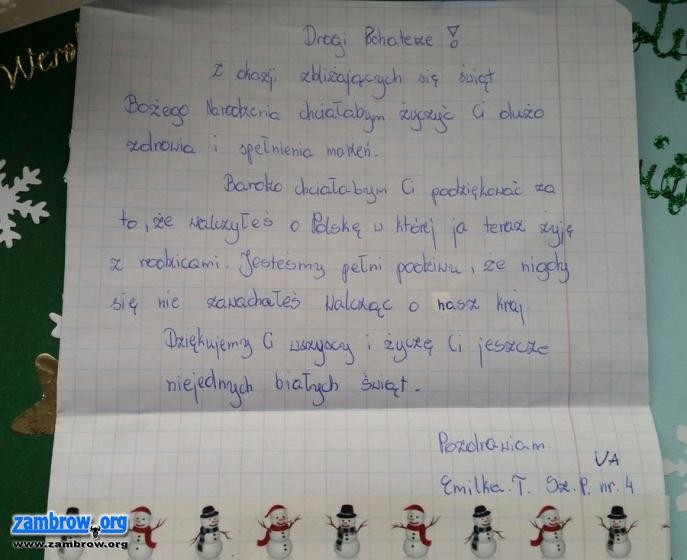 Drogi Bohaterze!
Z okazji zbliżających się świąt
Bożego Narodzenia chciałabym życzyć Ci dużo
zdrowia i spełnienia mażeń.
Bardzo chciałabym Ci podziękować za
to, że walczyłeś o Polskę w której ja teraz żyję
z rodzicami. Jesteśmy pełni podziwu, że nigdy
się nie zawachałeś walcząc o nasz kraj
Dziękujemy Ci wszyscy i życzę Ci jeszcze
niejednych białych świąt.
Pozdrawiam.
VA
Emilka. T. Sz. P. nr. 4
zambrow.org
www.zambrow.org